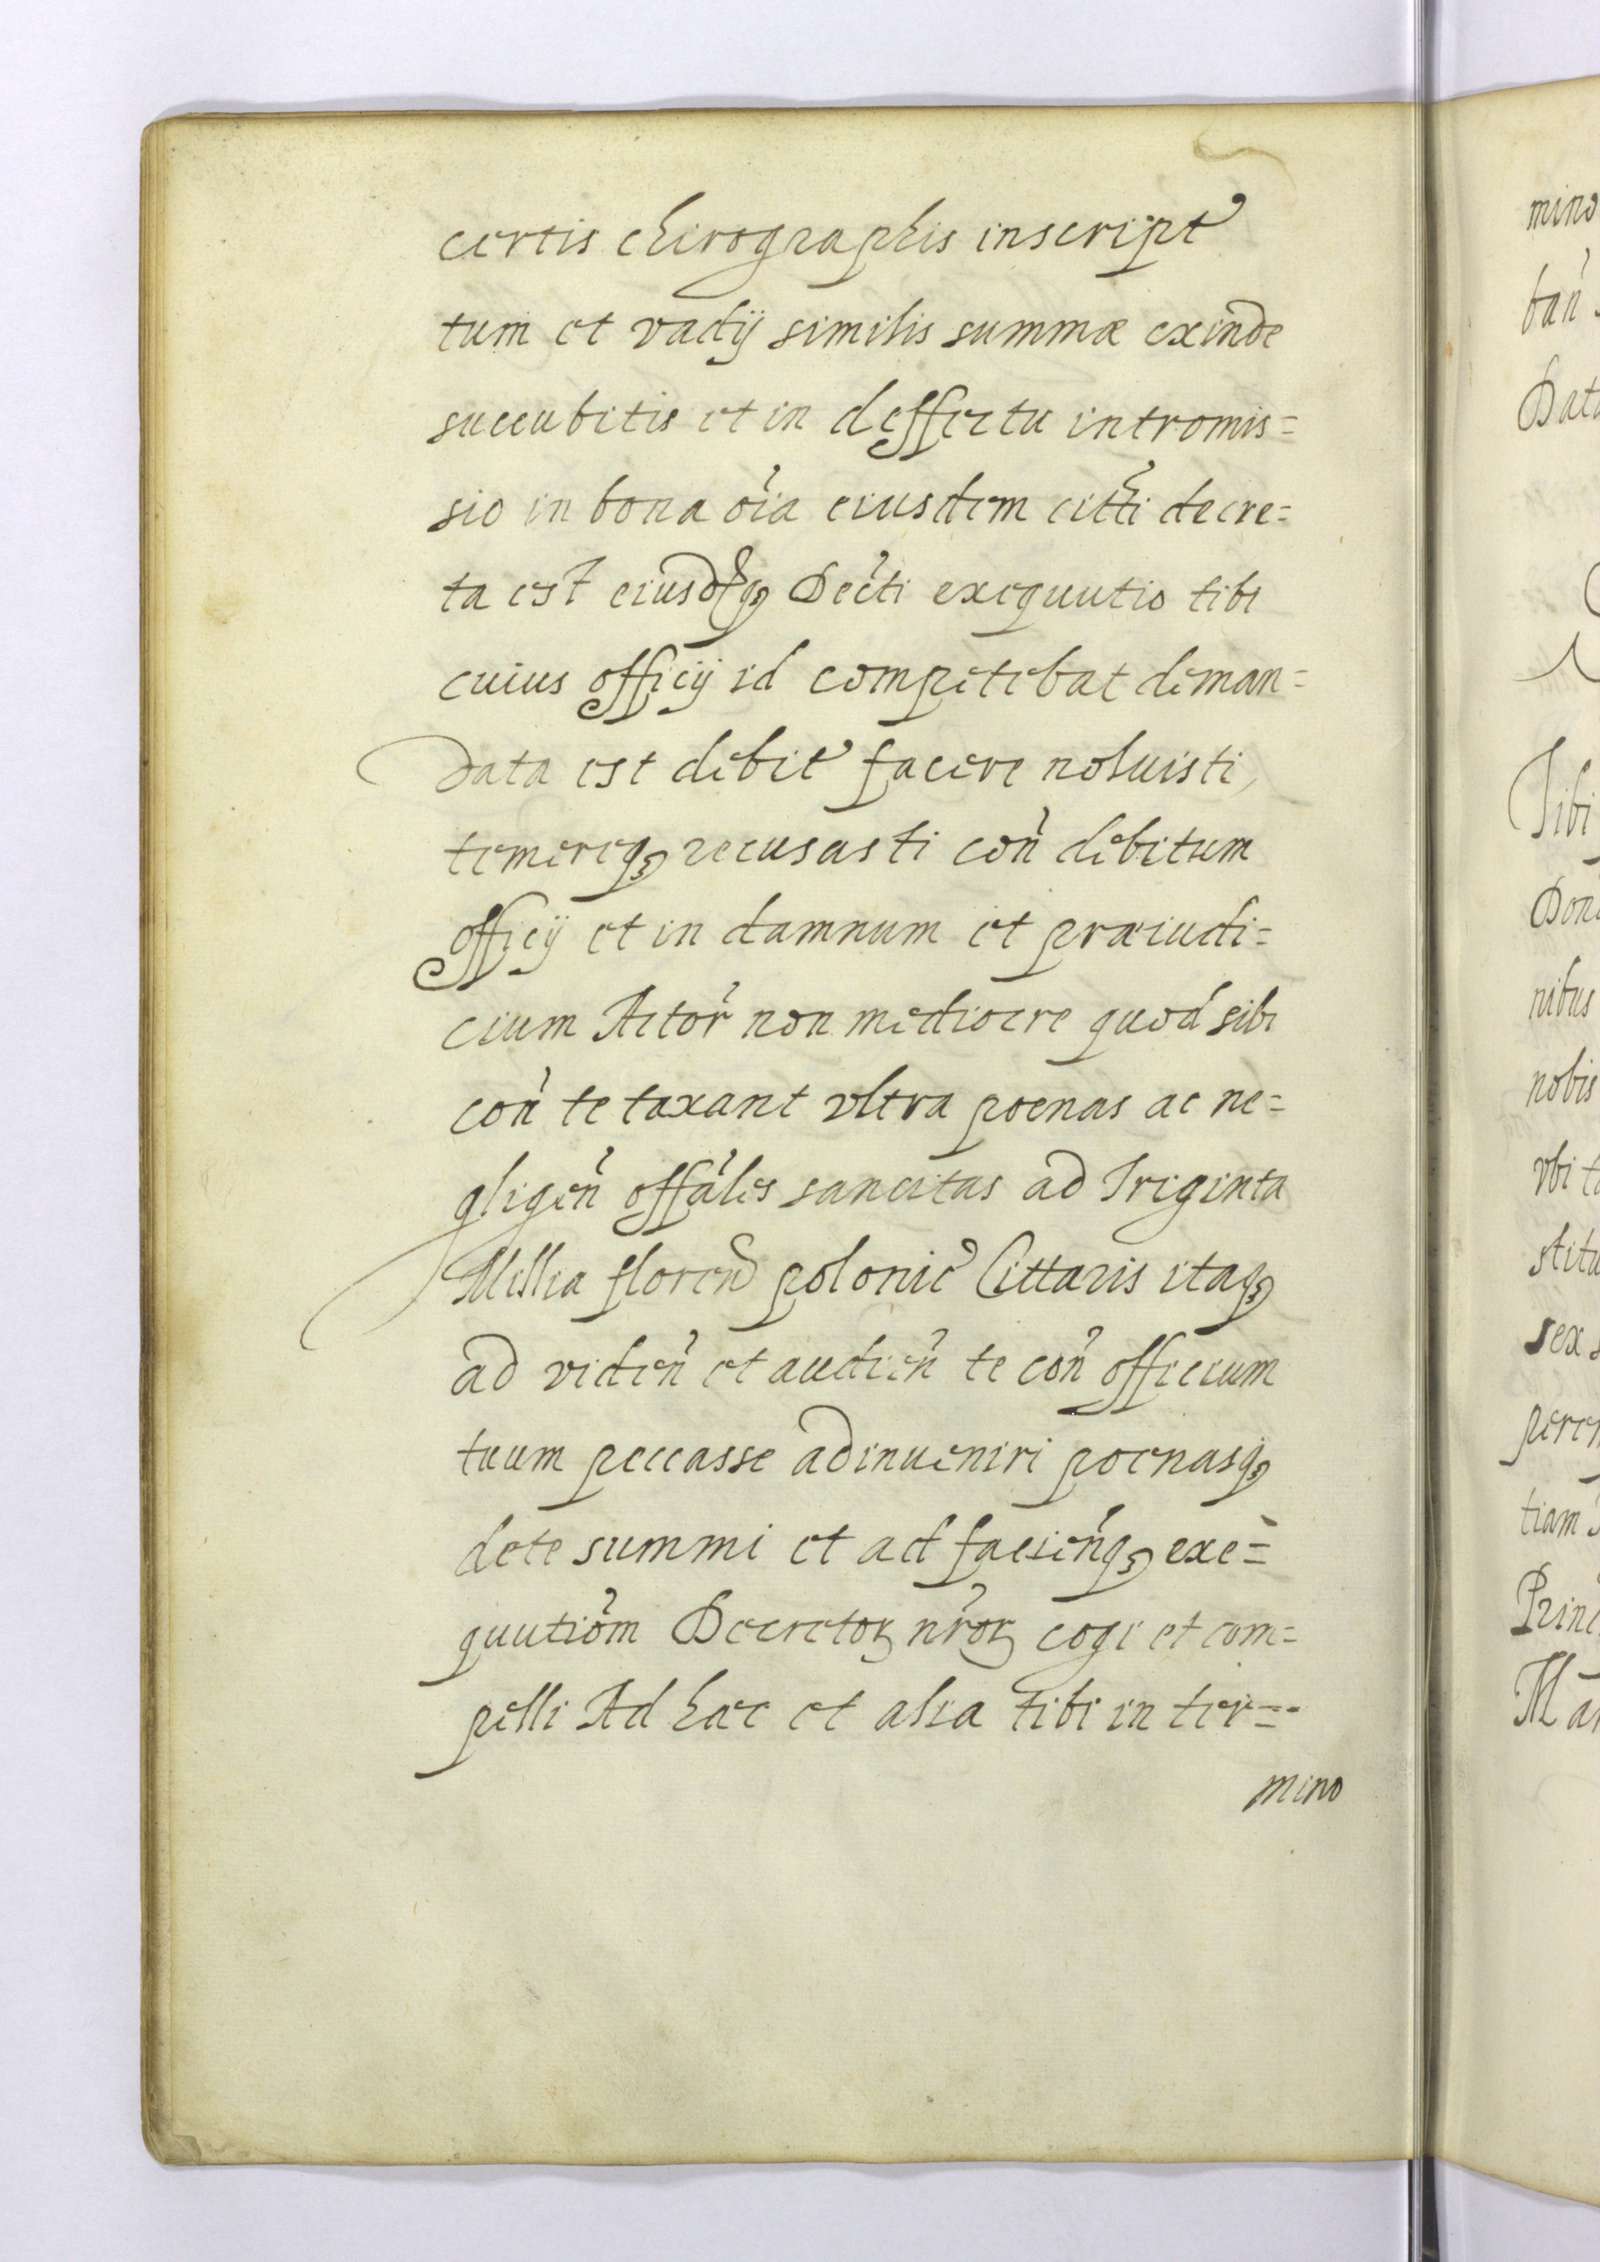 certis chirographis inscript
tum et vadij similis summæ exinde
succubitis et in deffectu intromis=
sio in bona oĩa eiusdem citti decre=
ta est eiusdq₃ Decti exequutio tibi
cuius officij id competebat deman=
data est debit facere noluisti,
temereq₃ recusasti con̄ debitum
officij et in damnum et præiudi=
cium Actor non mediocre quod sibi
con̄ te taxant vltra poenas ac ne=
gligen̄ offāles sancitas ad Triginta
Millia floren polonic Cittaris itaq₃
ad viden̄ et audien̄ te con̄ officium
tuum peccasse adinueniri poenasq₃
dete summi et ad facien̄q₃ exe=
quutiom̄ Decretoꝝ nr̄oꝝ cogi et com=
pelli Ad hæc et alia tibi in ter=
mino
mino
ban̄
Data
Tibi
nibus
nobis
vbi
stitu
sex
tiam
Princ